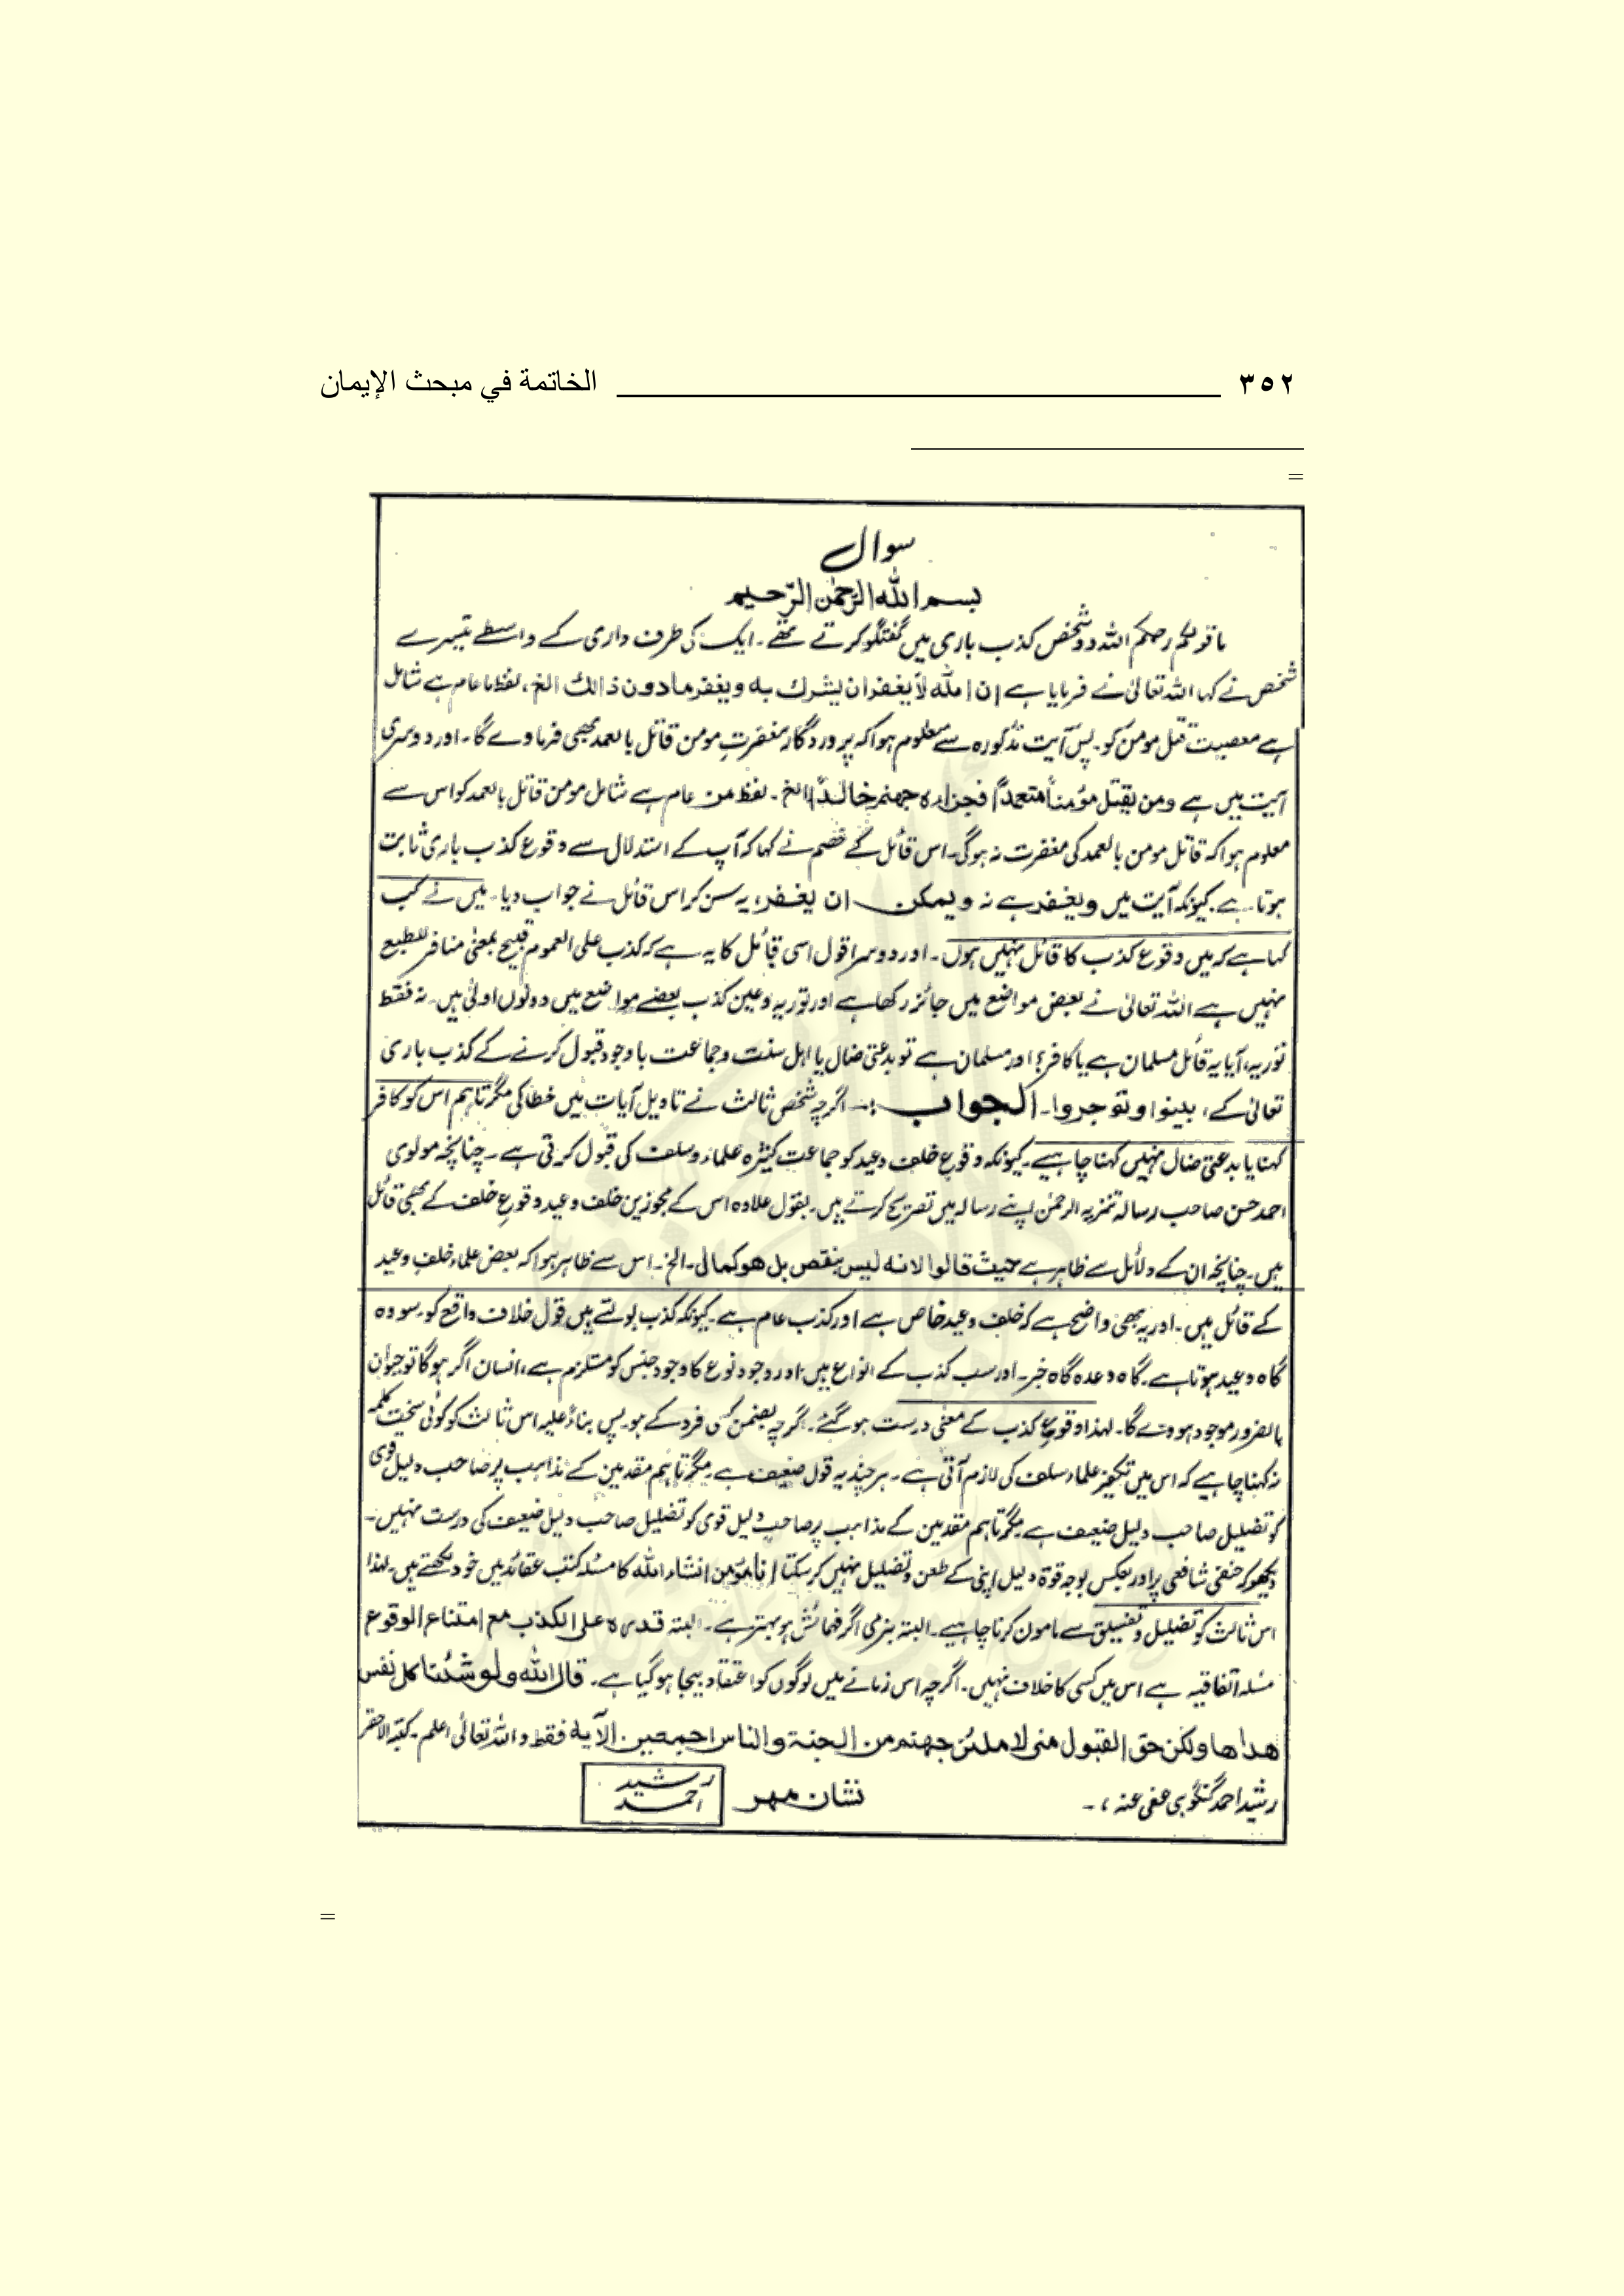 ٣٥٢ الخاتمة في مبحث الإيمان
=
سوال
بسم الله الرحمٰن الرّحیم
ما قولکم رحمکم اللہ دو شخص کذب باری میں گفتگو کرتے تھے۔ ایک کی طرف داری کے واسطے تیسرے
شخص نے کہا اللہ تعالیٰ نے فرمایا ہے ان الله لا يغفر ان يشرك به ويغفر مادون ذالك الخ، لفظ ما عام ہے شامل
ہے معصیت قتل مومن کو۔ پس آیت مذکورہ سے معلوم ہوا کہ پروردگار مغفرتِ مومن قاتل بالعمد بھی فرماوے گا۔ اور دوسری
آیت میں ہے ومن يقتل مؤمناً متعمداً فجزاءه جهنم خالداً الخ۔ لفظ من عام ہے شامل مومن قاتل بالعمد کو اس سے
معلوم ہوا کہ قاتل مومن بالعمد کی مغفرت نہ ہوگی۔ اس قائل کے خصم نے کہا کہ آپ کے استدلال سے وقوع کذب باری ثابت
ہوتا ہے۔ کیونکہ آیت میں ويغفر ہے نہ ويمكن ان يغفر، یہ سن کر اس قائل نے جواب دیا۔ میں نے کب
کہا ہے کہ میں وقوع کذب کا قائل نہیں ہوں۔ اور دوسرا قول اسی قائل کا یہ ہے کہ کذب علی العموم قبیح بمعنیٰ منافر للطبع
نہیں ہے اللہ تعالیٰ نے بعض مواضع میں جائز رکھا ہے اور توریہ و عین کذب بعضے مواضع میں دونوں اولیٰ ہیں۔ نہ فقط
توریہ، آیا یہ قائل مسلمان ہے یا کافر؟ اور مسلمان ہے تو بدعتی ضال یا اہل سنت و جماعت باوجود قبول کرنے کے کذب باری
تعالیٰ کے، بينوا وتوجروا۔ الجواب :۔ اگرچہ شخص ثالث نے تاویل آیات میں خطا کی مگر تاہم اس کو کافر
کہنا یا بدعتی ضال نہیں کہنا چاہیے۔ کیونکہ وقوع خلف وعید کو جماعت کثیرہ علماء و سلف کی قبول کرتی ہے۔ چنانچہ مولوی
احمد حسن صاحب رسالہ تنزیہ الرحمٰن اپنے رسالہ میں تصریح کرتے ہیں۔ بقول علاوہ اس کے مجوزین خلف وعید وقوع خلف کے بھی قائل
ہیں۔ چنانچہ ان کے دلائل سے ظاہر ہے حيث قالوا لانه ليس بنقص بل هو كمالى۔ الخ۔ اس سے ظاہر ہوا کہ بعض علماء خلف وعید
کے قائل ہیں۔ اور یہ بھی واضح ہے کہ خلف وعید خاص ہے اور کذب عام ہے۔ کیونکہ کذب بولتے ہیں قول خلاف واقع کو۔ سو وہ
گاہ وعید ہوتا ہے۔ گاہ وعدہ گاہ خبر۔ اور سب کذب کے انواع ہیں اور وجود نوع کا وجود جنس کو مستلزم ہے، انسان اگر ہوگا تو حیوان
بالضرور موجود ہووے گا۔ لہذا وقوع کذب کے معنی درست ہو گئے۔ اگرچہ بضمن کسی فرد کے ہو۔ پس بناءً علیہ اس ثالث کو کوئی سخت کلمہ
نہ کہنا چاہیے کہ اس میں تکفیر علماء سلف کی لازم آتی ہے۔ ہر چند یہ قول ضعیف ہے۔ مگر تاہم مقدمین کے مذاہب پر صاحب دلیل قوی
کو تضلیل صاحب دلیل ضعیف ہے۔ مگر تاہم متقدمین کے مذاہب پر صاحبِ دلیل قوی کو تضلیل صاحب دلیل ضعیف کی درست نہیں۔
دیکھو کہ حنفی شافعی پر اور بعکس بوجہ قوۃ دلیل اپنی کے طعن و تضلیل نہیں کر سکتا انا مؤمن انشاء الله کا مسئلہ کتب عقائد میں خود لکھتے ہیں۔ لہذا
اس ثالث کو تضلیل و تفسیق سے مامون کرنا چاہیے۔ البتہ بنرمی اگر فہمائش ہو بہتر ہے۔ البتہ قدره على الكذب مع امتناع الوقوع
مسئلہ اتفاقیہ ہے اس میں کسی کا خلاف نہیں۔ اگرچہ اس زمانے میں لوگوں کو اعتقاد بیجا ہو گیا ہے۔ قال الله ولو شئنا كل نفس
هداها ولكن حق القول منى لاملئن جهنم من الجنة والناس اجمعين۔ الآية فقط واللہ تعالیٰ اعلم۔ کتبہ الاحقر
رشید احمد گنگوہی عفی عنہ،۔ نشان مہر رشید احمد
=